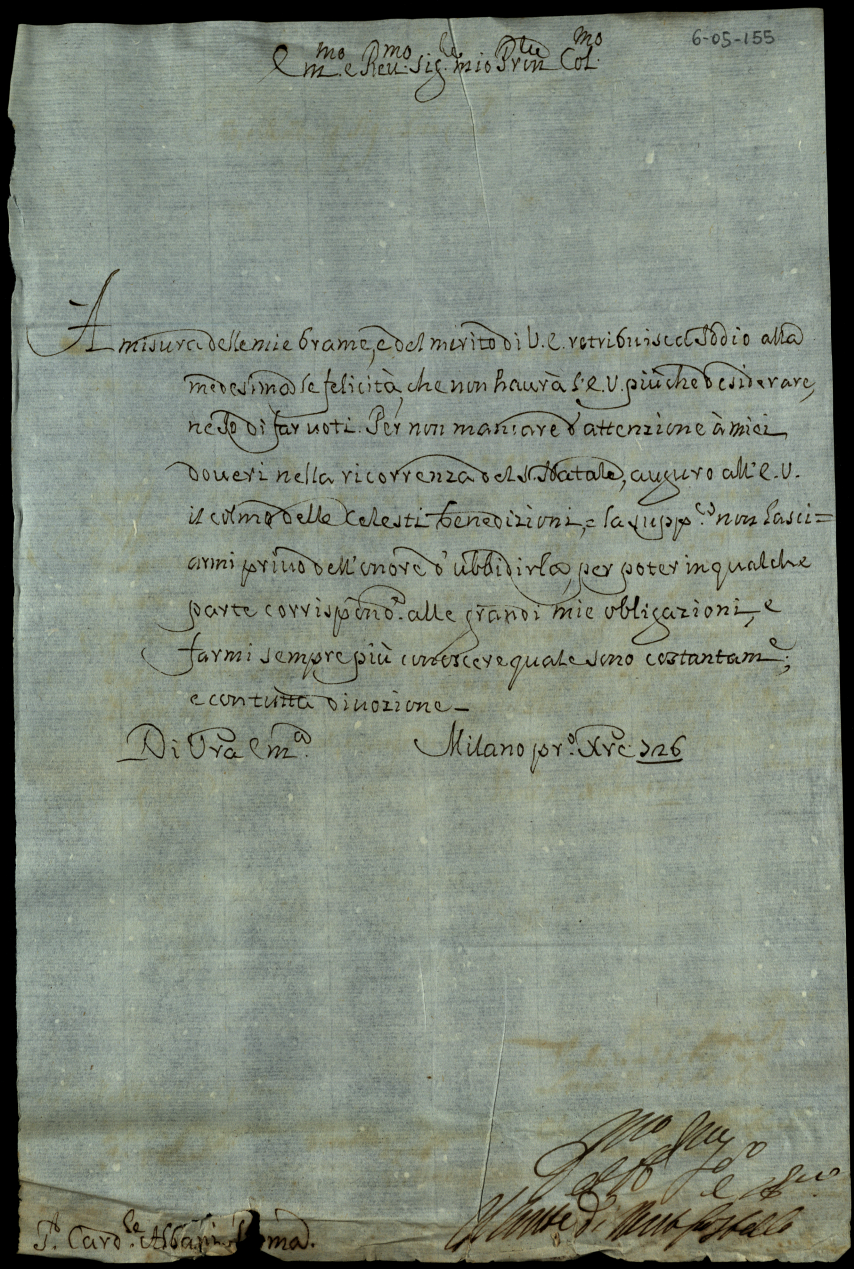 6-05-155
Em.mo e Reu.mo Sig.re mio Pron. Col.mo
A misura delle mie brame, e del merito di V.E. retribuisca Iddio alla
medesima le felicità, che non haurà l'E.V. più che desiderare,
ne Io di far uoti. Per non mancare d'attenzione à miei
doueri nella ricorrenza del S. Natale, auguro all'E.V.
il colmo delle Celesti benedizioni, = la supp.co non lasci=
armi priuo dell'onore d'ubbidirla, per poter in qualche
parte corrispond.e alle grandi mie obligazioni, e
farmi sempre più conoscere quale sono costantam.e,
e con tutta diuozione_
Di Vra Em.a Milano pr.o Xrē 726
Il Conte di
S.r Card.le Albani Roma.